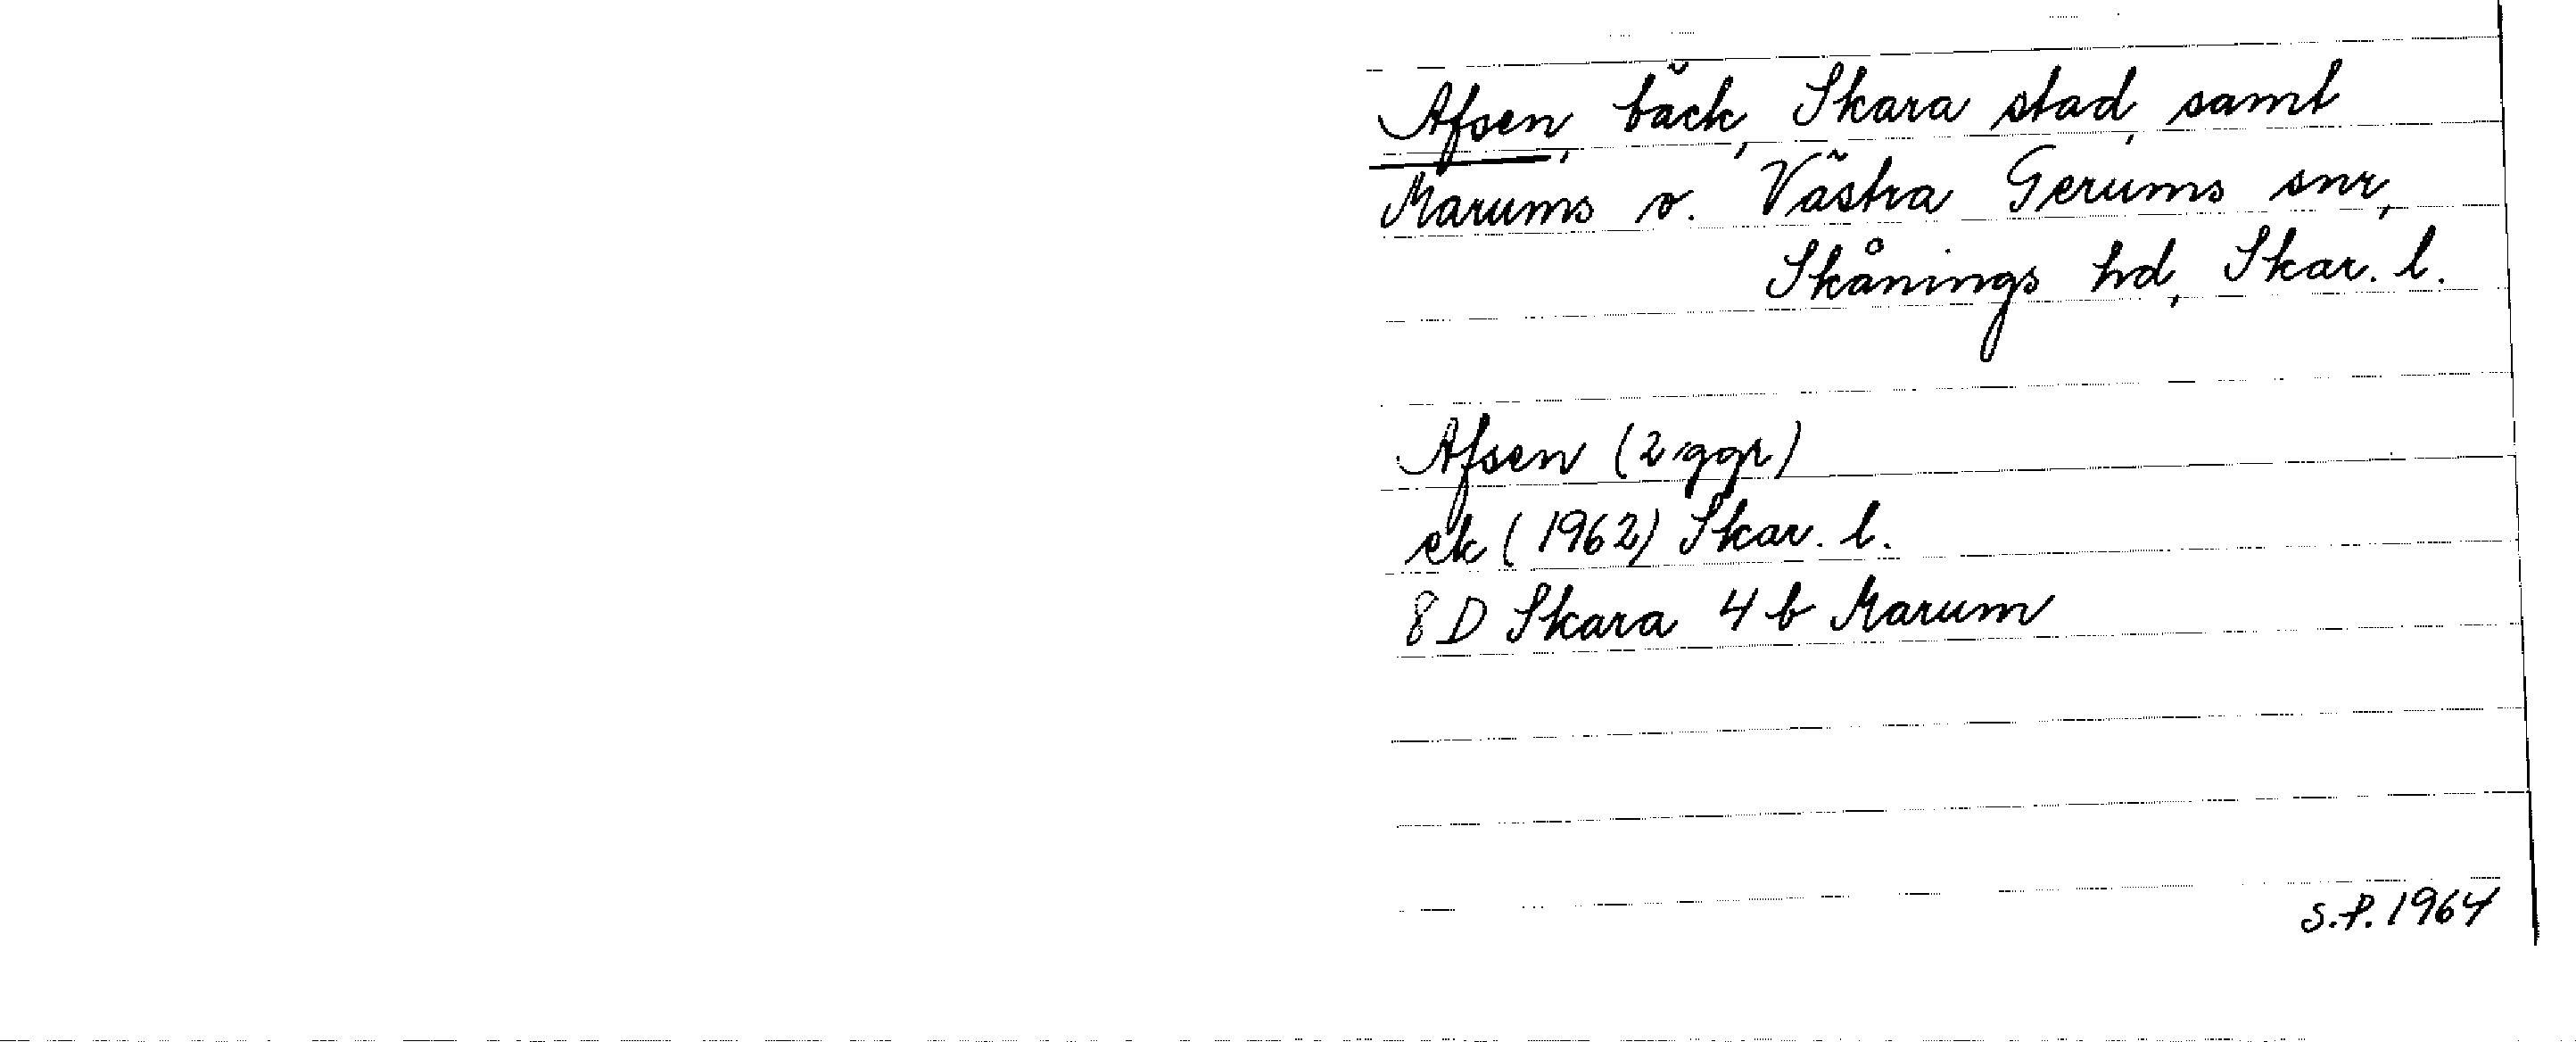 Afsen, bäck, Skara stad, samt
Marums o. Västra Gerums snr,
Skånings hd, Skar. l.
Afsen (2 ggr)
ek (1962) Skar. l.
8 D Skara 4 b Marum
S.P. 1964